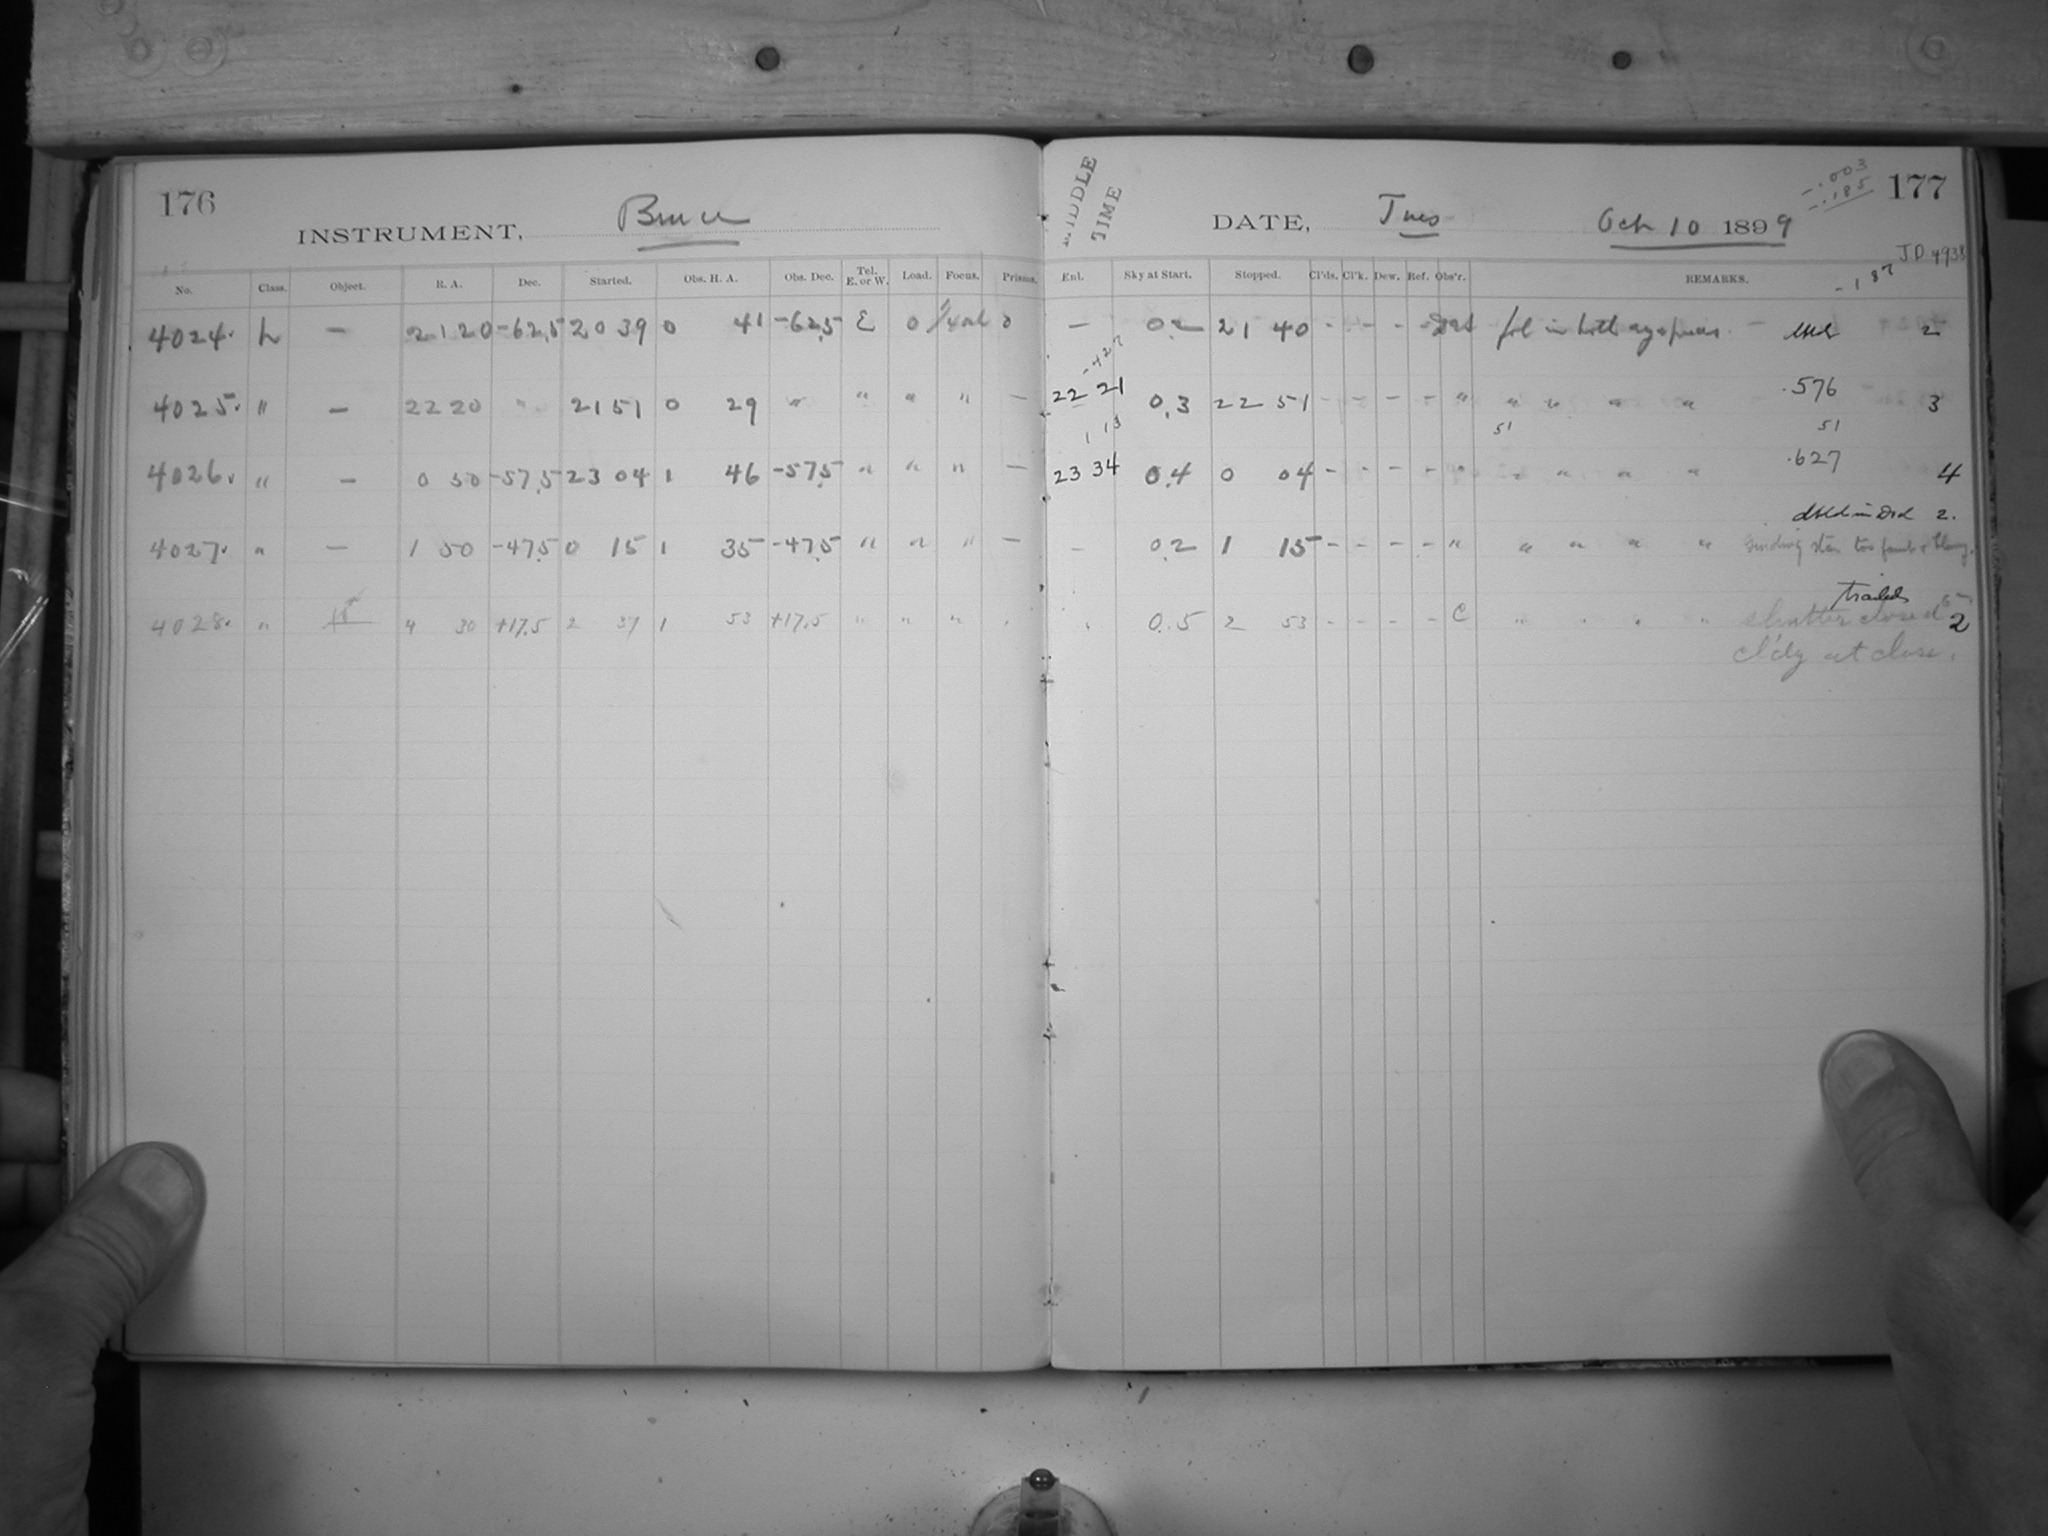 176
INSTRUMENT, Bruce
No. Class. Object. R. A. Dec. Started. Obs. H. A. Obs. Dec. Tel. E. or W. Load. Focus. Prisms.
4024. L — 21 20 -62.5 20 39 0 41 -62.5 E 0 0
4025. " — 22 20 " 21 51 0 29 " " " " —
4026. " — 0 50 -57.5 23 04 1 46 -57.5 " " " —
4027. " — 1 50 -47.5 0 15 1 35 -47.5 " " " —
4028. " 4 30 +17.5 2 37 1 53 +17.5 " " "
MIDDLE TIME
DATE, Tues Oct 10 1899
-.003
-.185
177
J.D. 4938
-187
Enl. Sky at Start. Stopped. Cl'ds. Cl'k. Dew. Ref. Obs'r. REMARKS.
— 0.2 21 40 - - - - fol in both 2
22 21 0.3 22 51 - - - - " " " " " .576 3
1 13 51 51
23 34 0.4 0 04 - - - - " " " " .627 4
2.
- 0.2 1 15 - - - - " " " " " star too faint
trailed
0.5 2 53 - - - - C " " " " shutter closed 2
cl'dy at close.